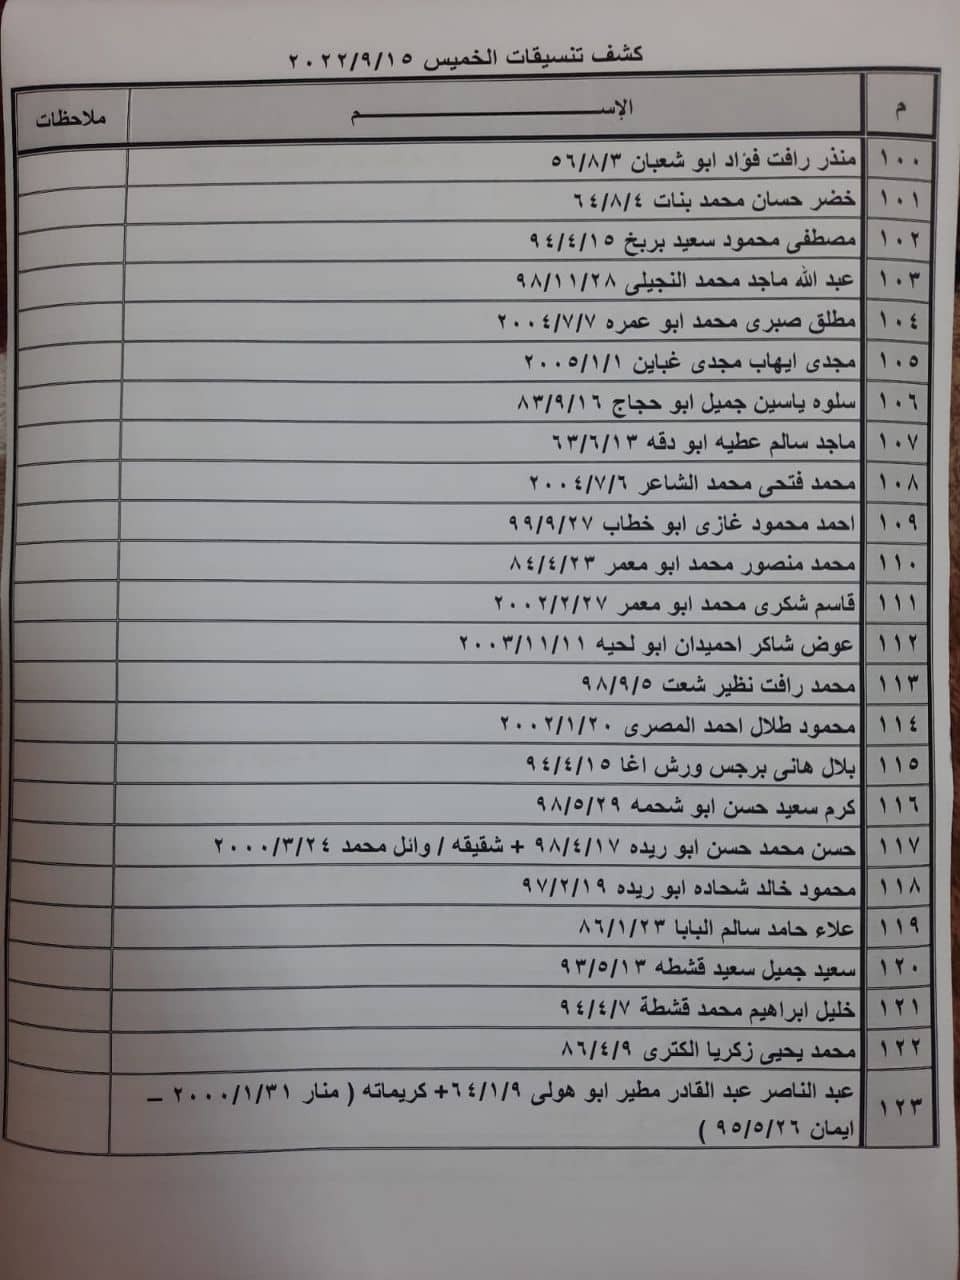 كشف تنسيقات الخميس ٢٠٢٢/٩/١٥
م الإســـــــــم ملاحظات
١٠٠ منذر رافت فؤاد ابو شعبان ٥٦/٨/٣
١٠١ خضر حسان محمد بنات ٦٤/٨/٤
١٠٢ مصطفى محمود سعيد بربخ ٩٤/٤/١٥
١٠٣ عبد الله ماجد محمد النجيلى ٩٨/١١/٢٨
١٠٤ مطلق صبرى محمد ابو عمره ٢٠٠٤/٧/٧
١٠٥ مجدى ايهاب مجدى غباين ٢٠٠٥/١/١
١٠٦ سلوه ياسين جميل ابو حجاج ٨٣/٩/١٦
١٠٧ ماجد سالم عطيه ابو دقه ٦٣/٦/١٣
١٠٨ محمد فتحى محمد الشاعر ٢٠٠٤/٧/٦
١٠٩ احمد محمود غازى ابو خطاب ٩٩/٩/٢٧
١١٠ محمد منصور محمد ابو معمر ٨٤/٤/٢٣
١١١ قاسم شكرى محمد ابو معمر ٢٠٠٢/٢/٢٧
١١٢ عوض شاكر احميدان ابو لحيه ٢٠٠٣/١١/١١
١١٣ محمد رافت نظير شعت ٩٨/٩/٥
١١٤ محمود طلال احمد المصرى ٢٠٠٢/١/٢٠
١١٥ بلال هانى برجس ورش اغا ٩٤/٤/١٥
١١٦ كرم سعيد حسن ابو شحمه ٩٨/٥/٢٩
١١٧ حسن محمد حسن ابو ريده ٩٨/٤/١٧ + شقيقه / وائل محمد ٢٠٠٠/٣/٢٤
١١٨ محمود خالد شحاده ابو ريده ٩٧/٢/١٩
١١٩ علاء حامد سالم البابا ٨٦/١/٢٣
١٢٠ سعيد جميل سعيد قشطه ٩٣/٥/١٣
١٢١ خليل ابراهيم محمد قشطة ٩٤/٤/٧
١٢٢ محمد يحيى زكريا الكترى ٨٦/٤/٩
١٢٣ عبد الناصر عبد القادر مطير ابو هولى ٦٤/١/٩+ كريماته ( منار ٢٠٠٠/١/٣١ –
ايمان ٩٥/٥/٢٦ )